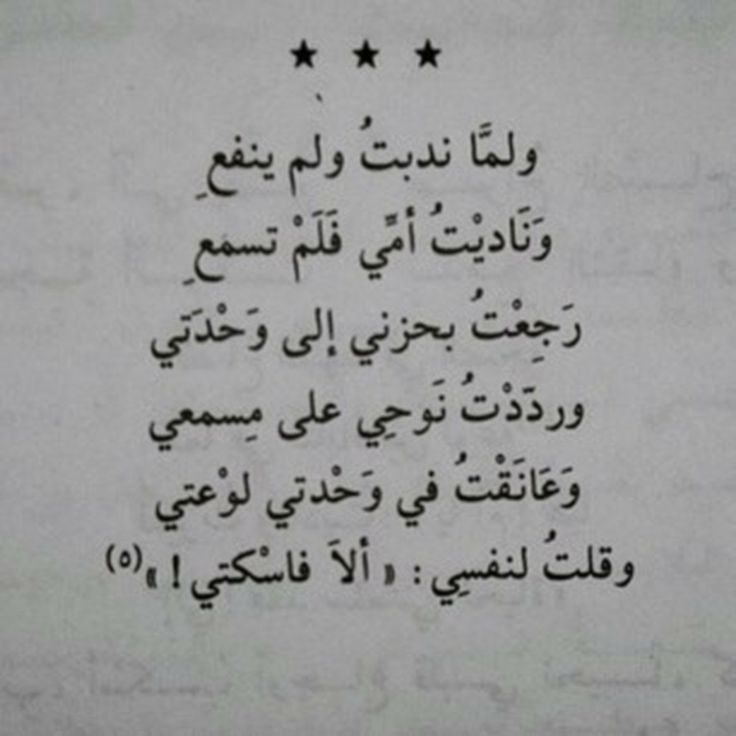 ★ ★ ★
ولمَّا ندبتُ ولم ينفعِ
وَنَاديْتُ أمِّي فَلَمْ تسمعِ
رَجِعْتُ بحزني إلى وَحْدَتي
وردّدْتُ نَوحِي على مِسمعي
وَعَانَقْتُ في وَحْدتي لوْعتي
وقلتُ لنفسِي: «ألاَ فاسْكتي!»(٥)